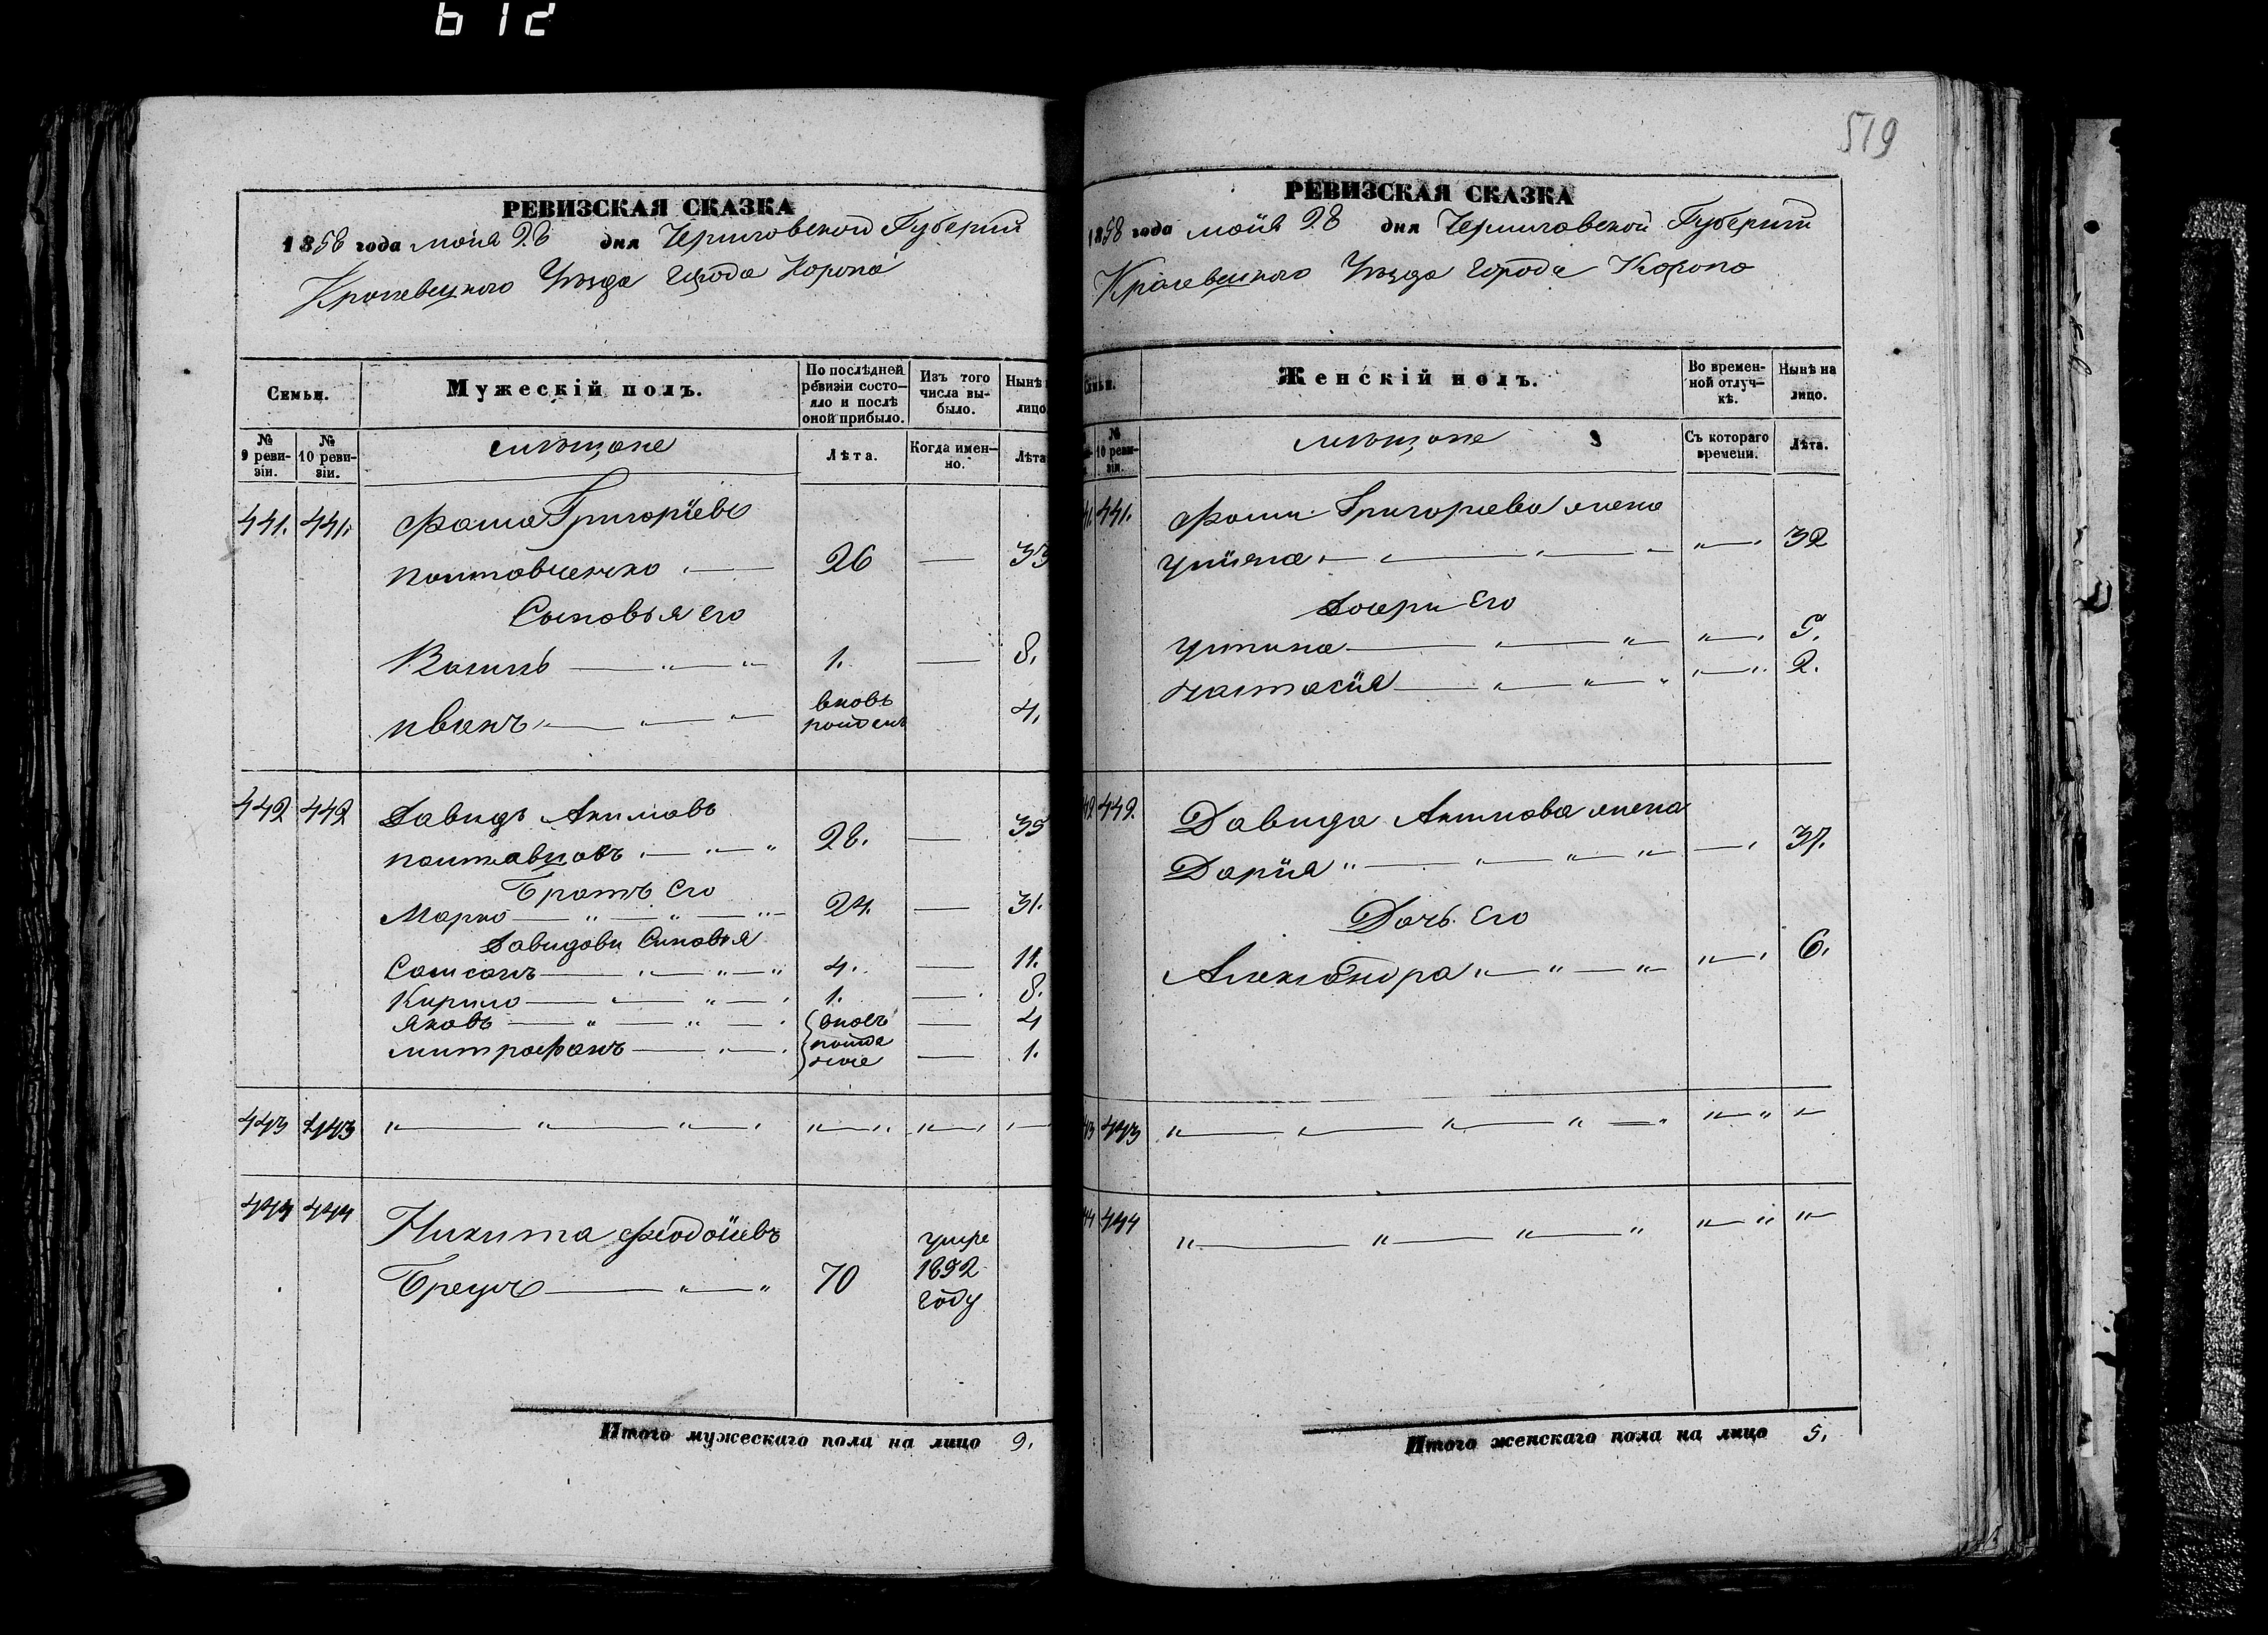 612
РЕВИЗСКАЯ СКАЗКА
1858 года маія 28 дня Черниговской Губерніи
Кролевецкого Уѣзда города Коропа
Семьи.
Мужескій полъ.
По послѣдней ревизіи состояло и послѣ оной прибыло.
Изъ того числа выбыло.
Нынѣ
лицо
№ 9 ревизіи.
№ 10 ревизіи.
мѣщане
Лѣта.
Когда именно.
Лѣта
441. 441. Фома Григоріевъ
полтавченко 26 — 33
Сыновья Его
Василь 1. — 8.
иванъ вновь рожденъ 4.
442 442 Давидъ Акимовъ
28. — 35
Братъ Его
Марко 24. — 31.
Давидови Синовья
Самсонъ 4. — 11.
Кирило 1. — 8.
Яковъ вновь — 4
митрофанъ рожденые — 1.
443 443
444 444 Никита
70 умре 1852 году
Итого мужескаго пола на лицо 9.
519
РЕВИЗСКАЯ СКАЗКА
1858 года маія 28 дня Черниговской Губерніи
Кролевецкого Уѣзда города Коропа
Женскій полъ.
Во временной отлучкѣ.
Нынѣ на лицо.
№ 10 ревизіи.
мѣщане
Съ котораго времени.
Лѣта.
441. Фоми Григориева жена
32
Дочери Его
5.
настасія 2.
442. Давида Акимова жена
Дарія 37.
Дочь Его
Александра 6.
443
444
Итого женскаго пола на лицо 5.